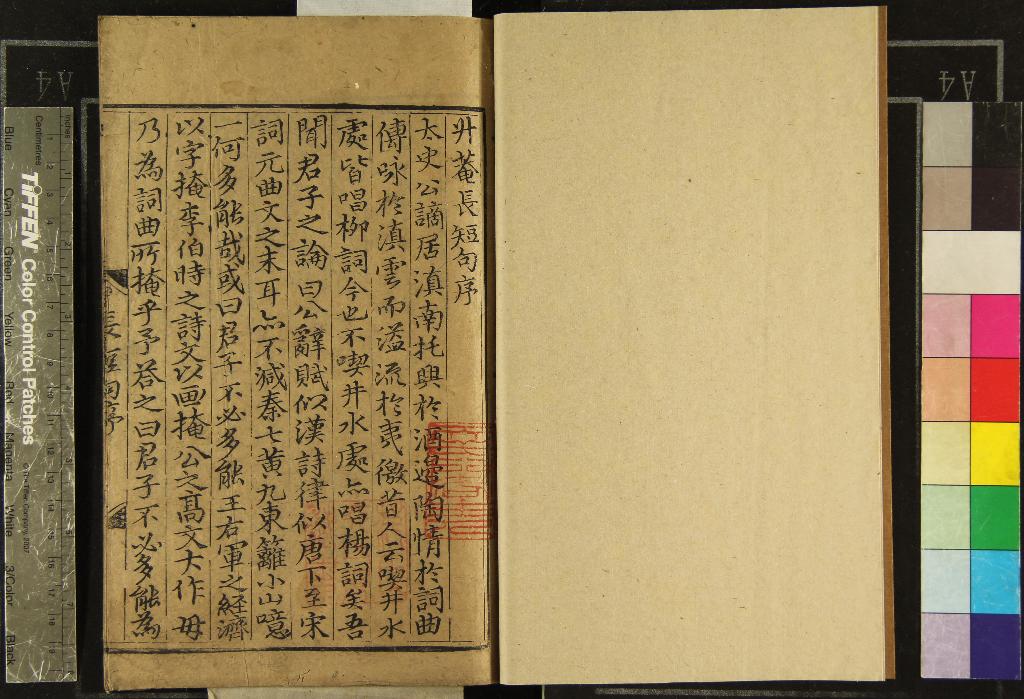 升菴長短句序
太史公謫居滇南托興於酒邊陶情於詞曲
傳咏於滇雲而溢流於夷徼昔人云喫井水
處皆唱栁詞今也不喫井水處亦唱楊詞矣吾
聞君子之論曰公辭賦似漢詩律似唐下至宋
詞元曲文之末耳亦不減秦七黄九東籬小山噫
一何多能哉或曰君子不必多能王右軍之經濟
以字掩李伯時之詩文以画掩公之高文大作毋
乃為詞曲所掩乎予答之曰君子不必多能為
長短句序
A4
A4
inches
Centimetres
TIFFEN Color Control Patches
© The Tiffen Company, 2007
Blue
Cyan
Green
Yellow
Red
Magenta
White
3/Color
Black